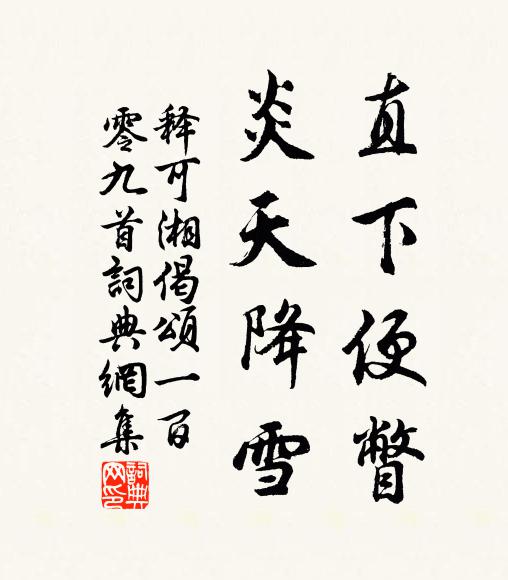 直下便瞥
炎天降雪
释可湘偈頌一百
零九首詞典網集
詞典网印